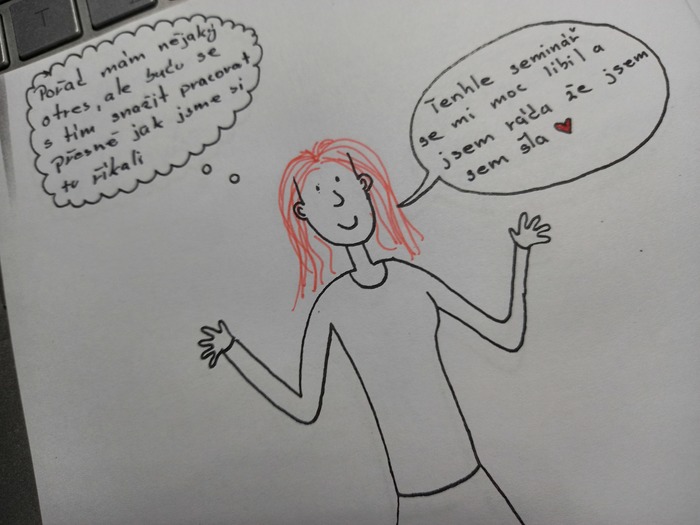 T
Pořád mám nějaký
stres, ale budu se
s tím snažit pracovat
Přesně jak jsme si
tu říkali
Tenhle seminář
se mi moc líbil a
jsem ráda že jsem
sem šla